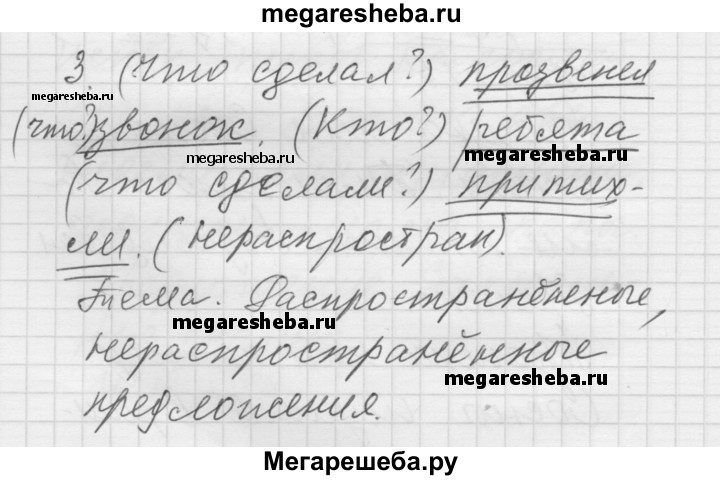 megaresheba.ru
3. (Что сделал?) прозвенел
megaresheba.ru
(что?) звонок. (Кто?) ребята
megaresheba.ru
megaresheba.ru
(что сделали?) притих-
ли. (нераспростран).
Тема. Распространённые,
megaresheba.ru
нераспространённые
megaresheba.ru
предложения.
Мегарешеба.ру